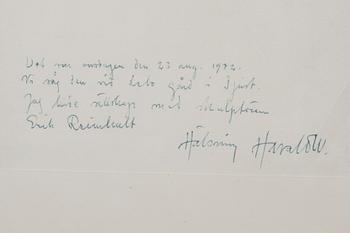 Det var onsdagen den 23 aug. 1972.
Vi såg den vid Lebo gård i Tjust.
Jag hade sällskap med skulptören
Erik Reinhult
Hälsning Harald W.